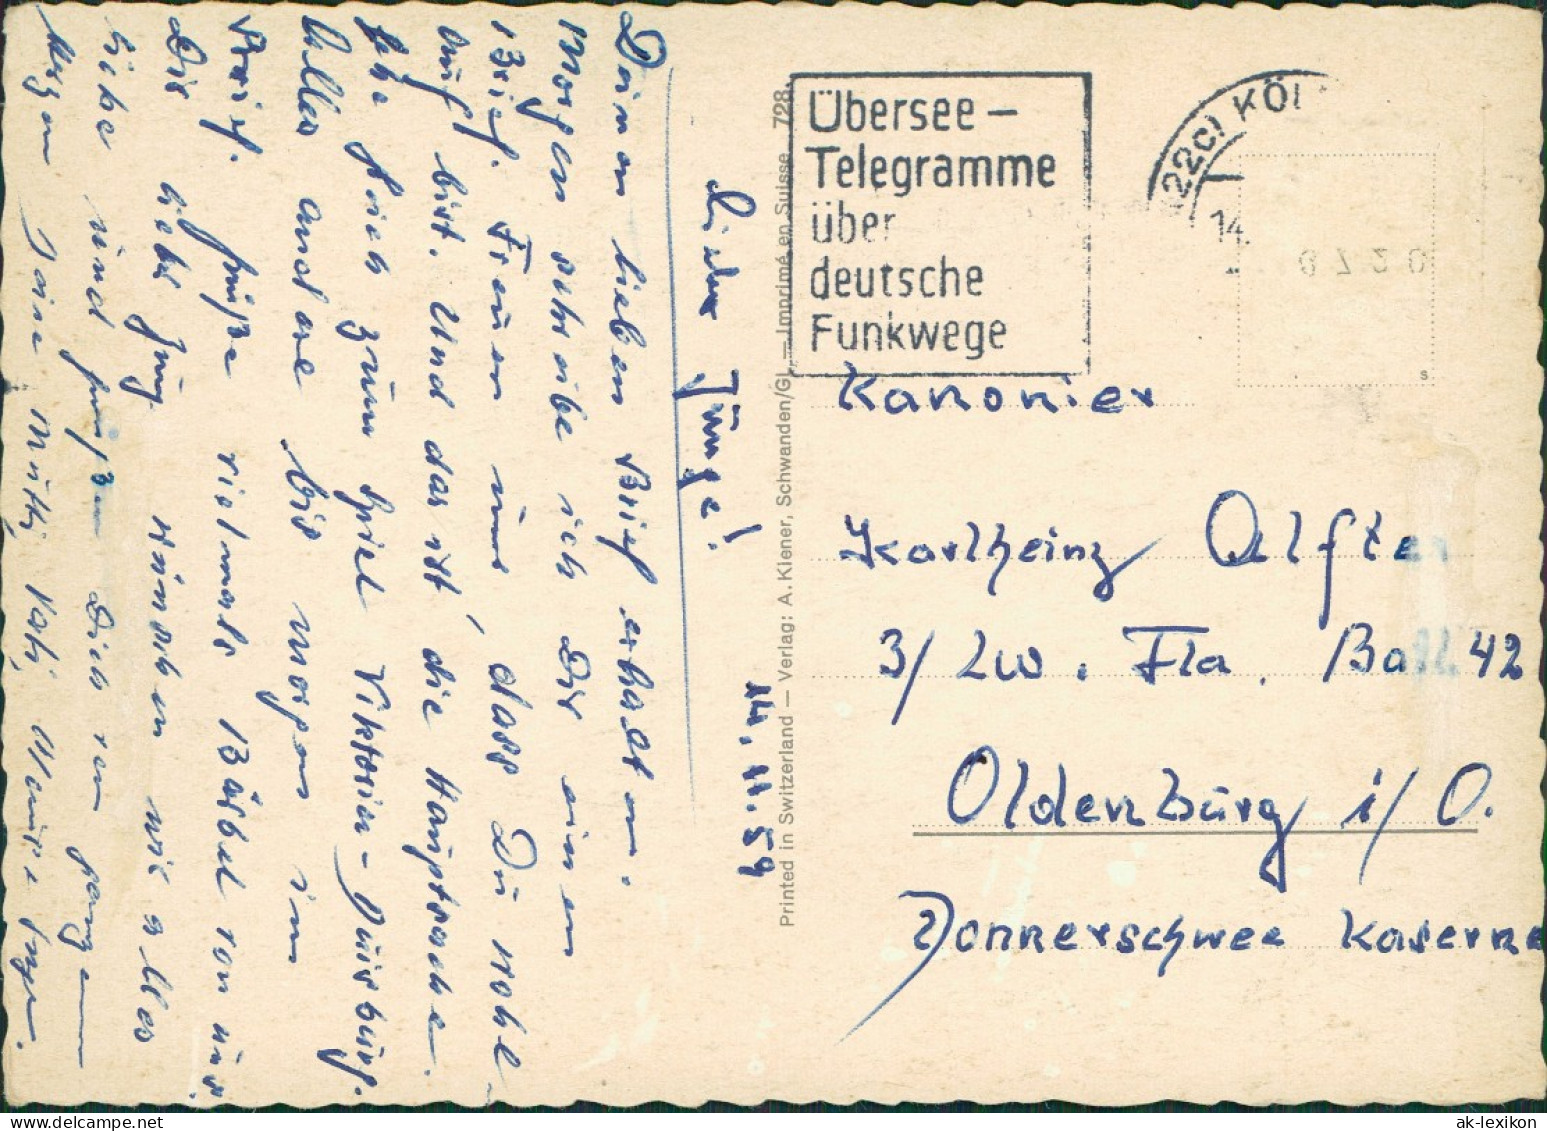 14. 11. 59
Lieber Junge!
Deinen lieben Brief erhalten.
Morgen schreibe ich Dir einen
Brief. Freuen uns, dass Du wohl
auf bist. Und das ist die Hauptsache.
zum Spiel Viktoria-Duisburg.
Alles andere bis morgen im
Brief. Grüße vielmals Bärbel von uns
Dir lieb Jung wünschen wir alles
liebe und grüßen Dich von ganzem
Herzen Deine Mutti, Vati,
Printed in Switzerland — Verlag: A. Kiener, Schwanden/GL. — Imprimé en Suisse 728
Übersee-
Telegramme
über
deutsche
Funkwege
(22c) KÖL
14.
0720
s
Kanonier
Karlheinz Alfter
3/ Lw. Fla. Batl. 42
Oldenburg i/O.
Donnerschwee Kaserne
delcampe.net
ak-lexikon